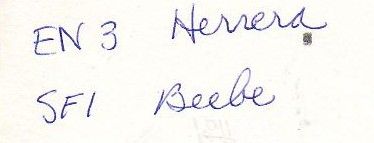 EN 3 Herrera
SF1 Beebe